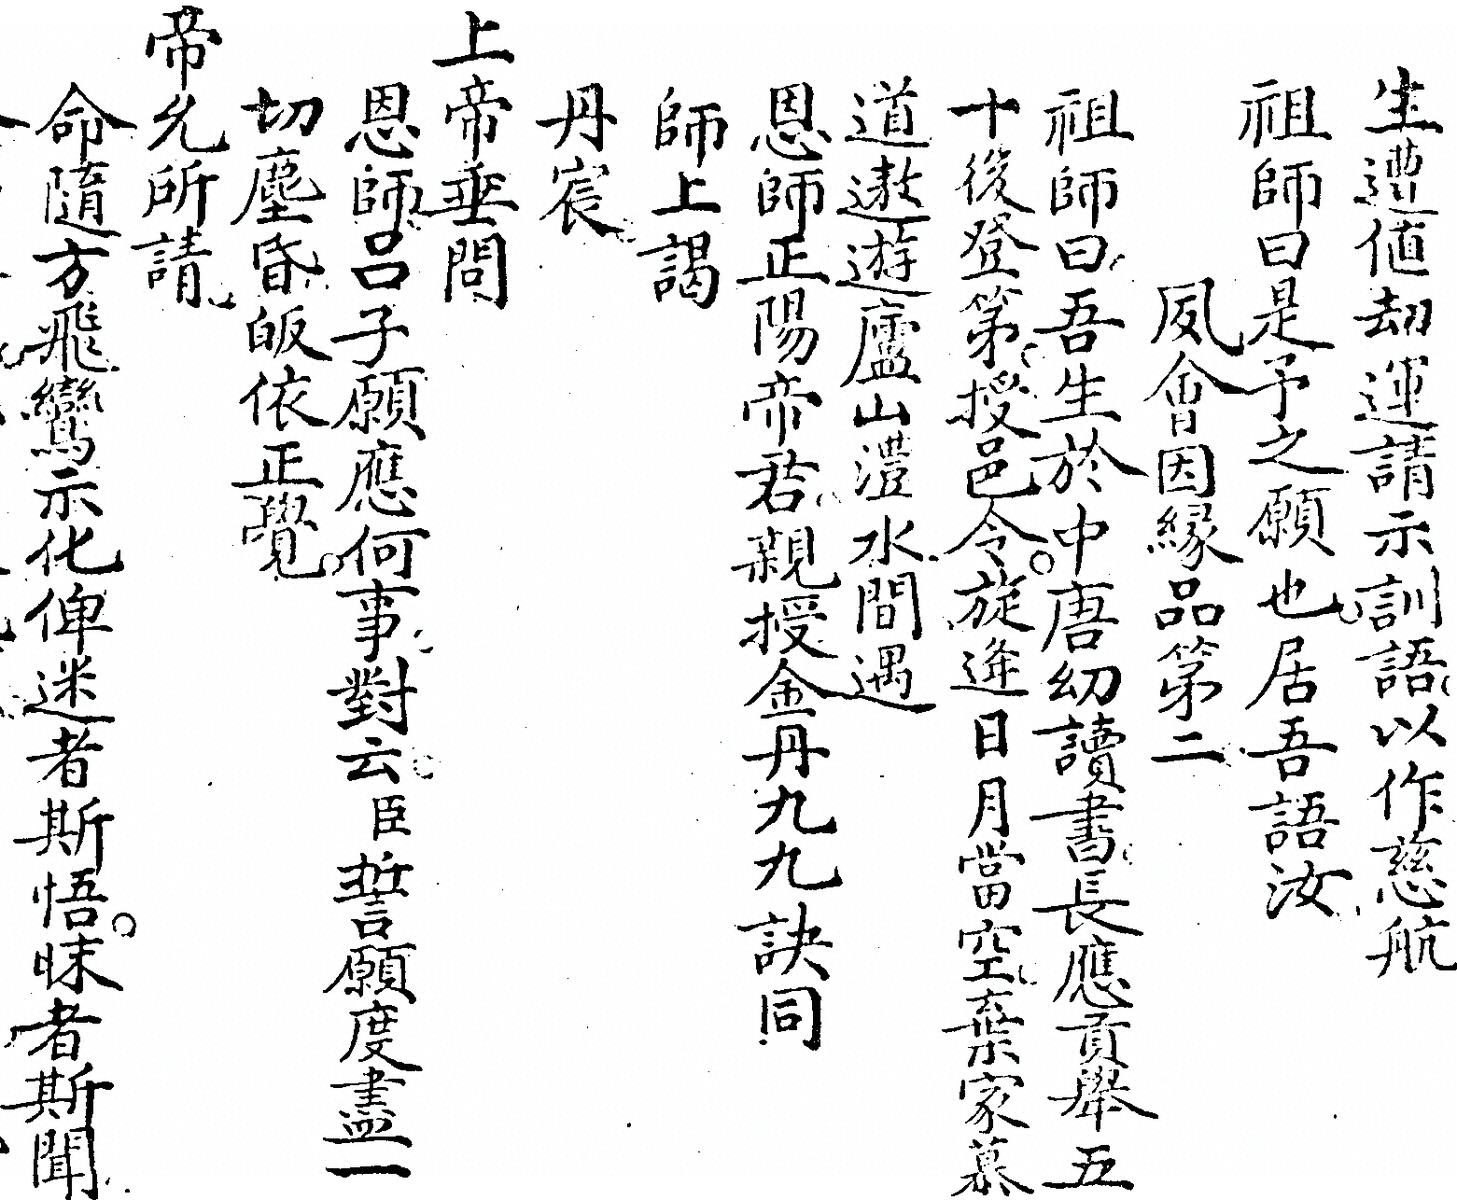 生遭值劫運請示訓語以作慈航
祖師曰是予之願也居吾語汝
夙會因緣品第二
祖師曰吾生於中唐幼讀書長應貢舉五
十後登第授邑令旋逢日月當空棄家慕
道遨遊廬山澧水間遇
恩師正陽帝君親授金丹九九訣同
師上謁
丹宸
上帝垂問
恩師呂子願應何事對云臣誓願度盡一
切塵昏皈依正覺
帝允所請
命隨方飛鸞示化俾迷者斯悟昧者斯聞